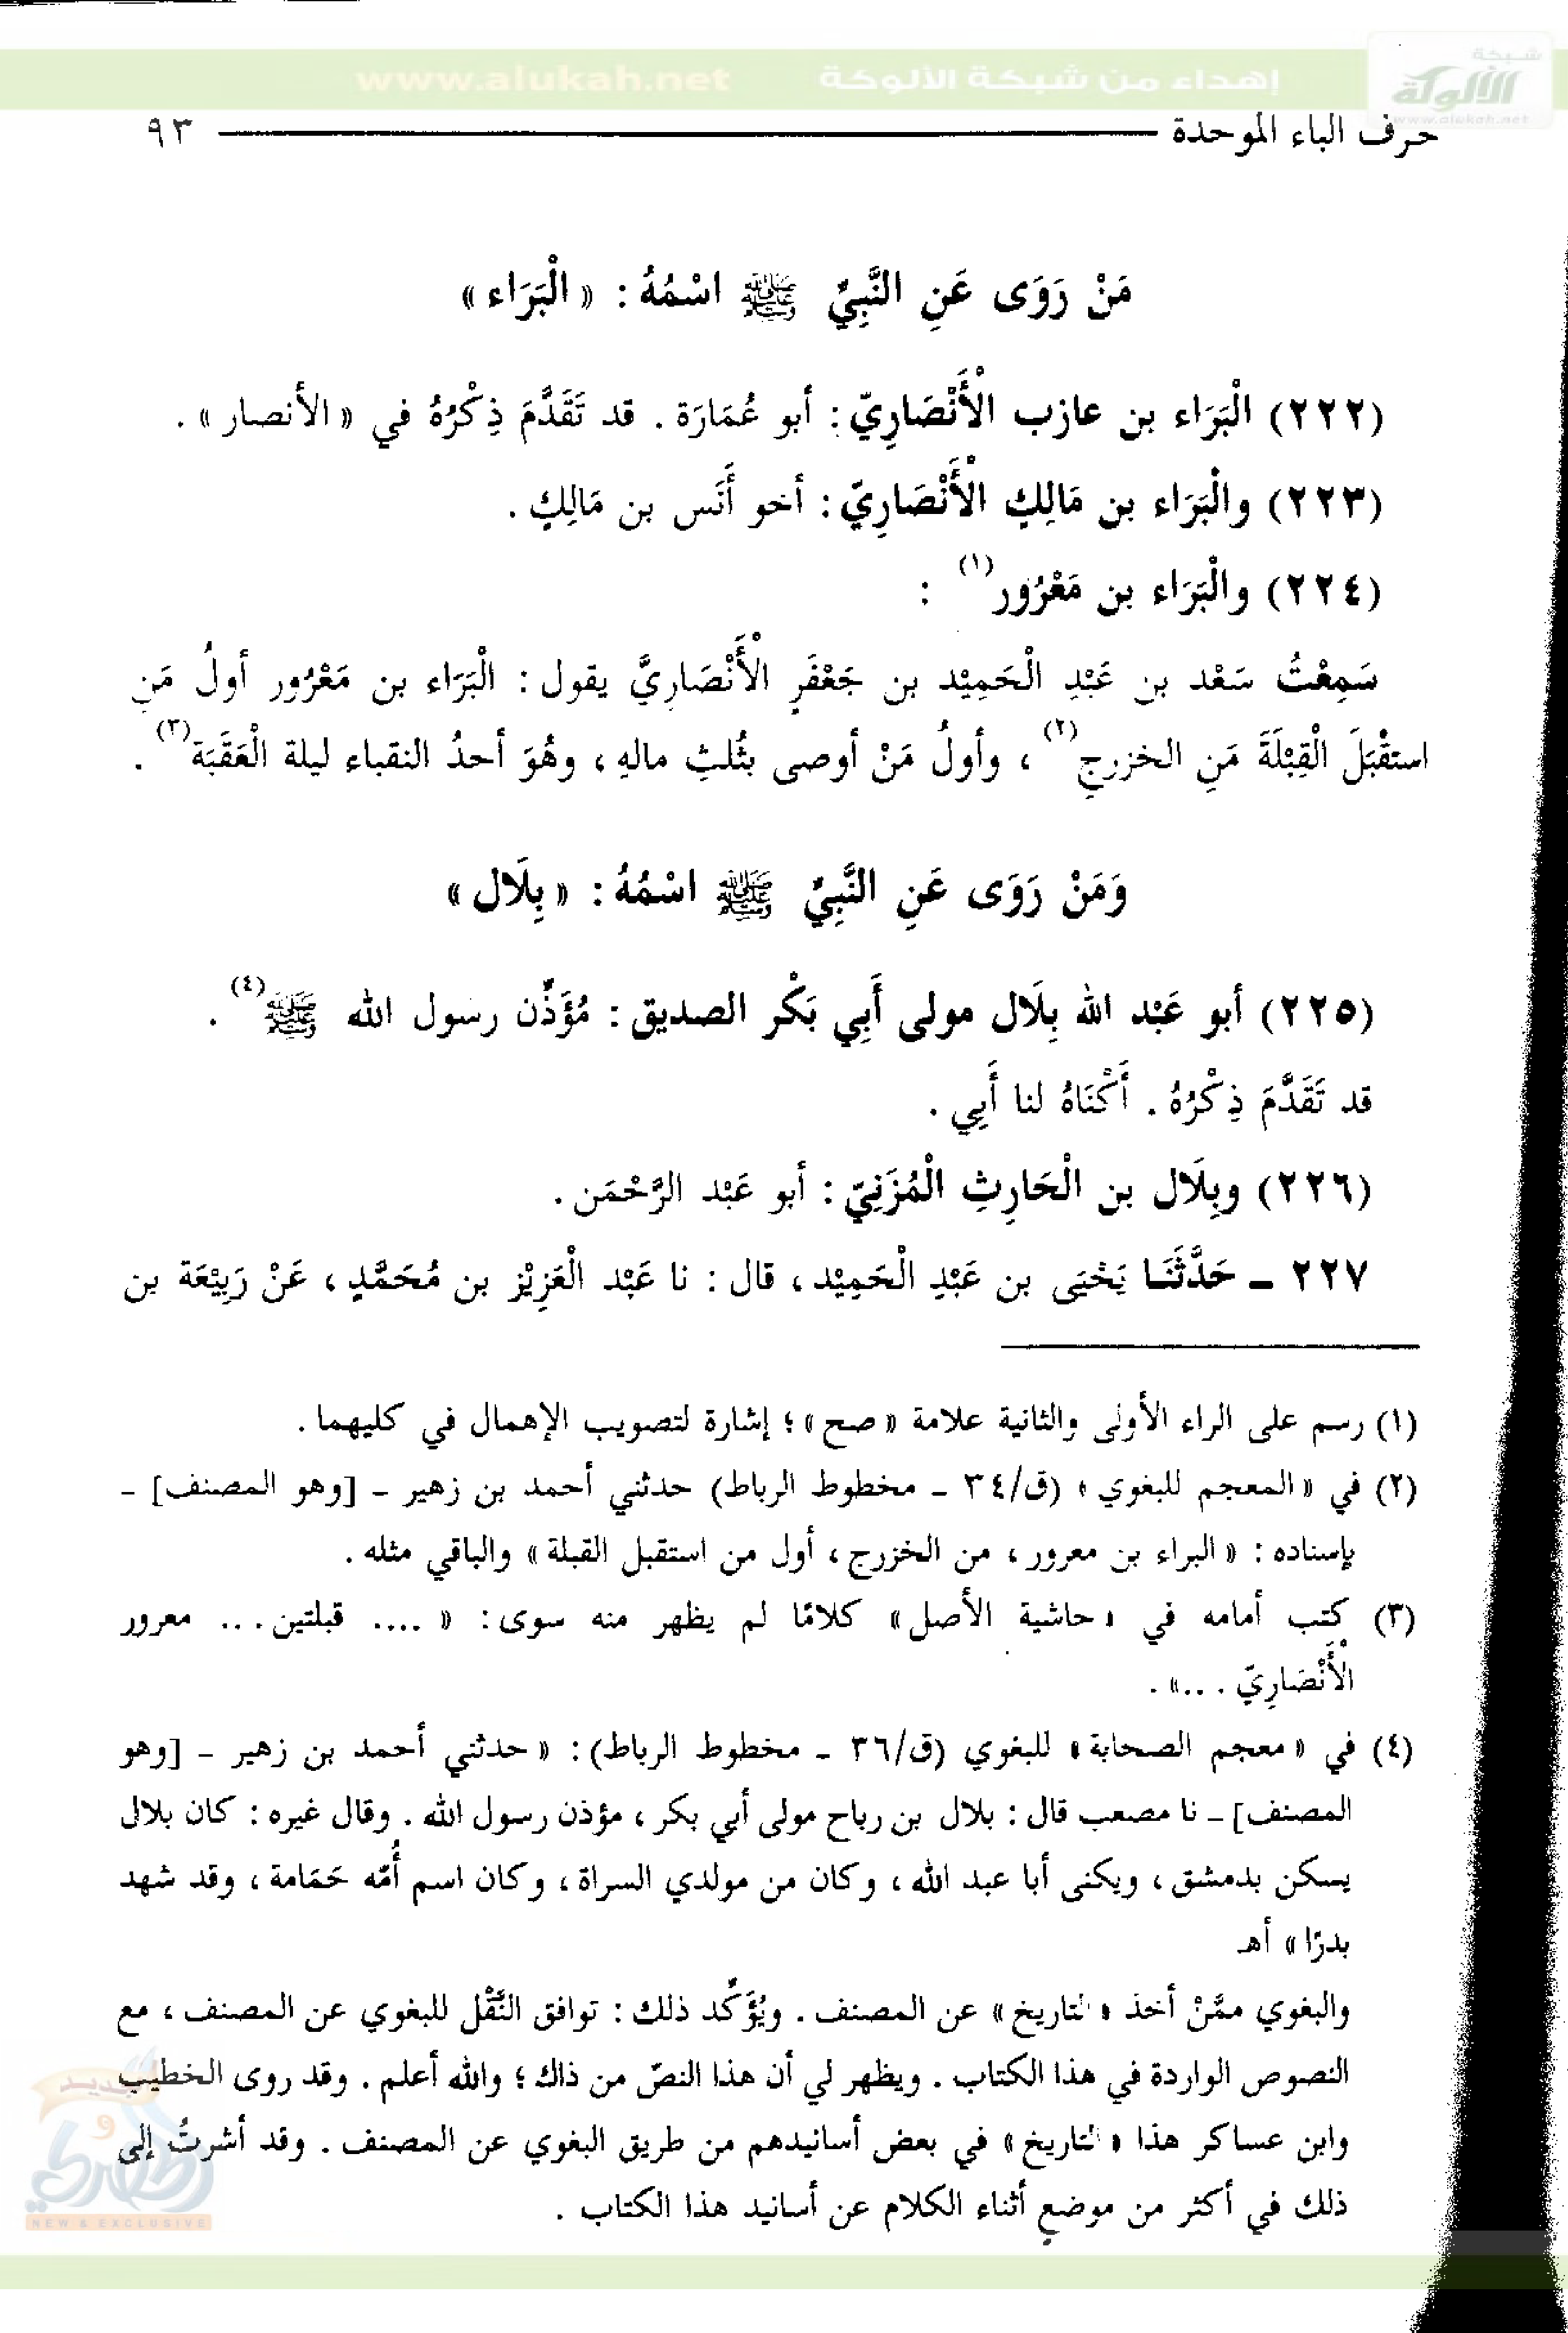 شبكة
الألوكة
www.alukah.net
إهداء من شبكة الألوكة
www.alukah.net
حرف الباء الموحدة ٩٣
مَنْ رَوَى عَنِ النَّبِيِّ ﷺ اسْمُهُ : « الْبَرَاء »
(٢٢٢) الْبَرَاء بن عازب الْأَنْصَارِيّ : أبو عُمَارَة . قد تَقَدَّمَ ذِكْرُهُ في « الأنصار » .
(٢٢٣) والْبَرَاء بن مَالِكٍ الْأَنْصَارِيّ : أخو أَنَس بن مَالِكٍ .
(٢٢٤) والْبَرَاء بن مَعْرُور(١) :
سَمِعْتُ سَعْد بن عَبْدِ الْحَمِيْد بن جَعْفَرٍ الْأَنْصَارِيَّ يقول : الْبَرَاء بن مَعْرُور أولُ مَنِ
استقْبَلَ الْقِبْلَةَ مَنِ الخزرجِ(٢) ، وأولُ مَنْ أوصى بثُلثِ مالهِ ، وهُوَ أحدُ النقباء ليلة الْعَقَبَة(٣) .
وَمَنْ رَوَى عَنِ النَّبِيِّ ﷺ اسْمُهُ : « بِلَال »
(٢٢٥) أبو عَبْد الله بِلَال مولى أَبِي بَكْر الصديق : مُؤَذِّن رسول الله ﷺ(٤) .
قد تَقَدَّمَ ذِكْرُهُ . أَكْنَاهُ لنا أَبِي .
(٢٢٦) وبِلَال بن الْحَارِثِ الْمُزَنِيّ : أبو عَبْد الرَّحْمَن .
٢٢٧ - حَدَّثَنَا يَحْيَى بن عَبْدِ الْحَمِيْد ، قال : نا عَبْد الْعَزِيْز بن مُحَمَّدٍ ، عَنْ رَبِيْعَة بن
(١) رسم على الراء الأولى والثانية علامة « صح » ؛ إشارة لتصويب الإهمال في كليهما .
(٢) في « المعجم للبغوي » (ق/٣٤ - مخطوط الرباط) حدثني أحمد بن زهير - [وهو المصنف] -
بإسناده : « البراء بن معرور ، من الخزرج ، أول من استقبل القبلة » والباقي مثله .
(٣) كتب أمامه في « حاشية الأصل » كلامًا لم يظهر منه سوى : « .... قبلتين ... معرور
الْأَنْصَارِيّ ...» .
(٤) في « معجم الصحابة » للبغوي (ق/٣٦ - مخطوط الرباط) : « حدثني أحمد بن زهير - [وهو
المصنف] - نا مصعب قال : بلال بن رباح مولى أبي بكر ، مؤذن رسول الله . وقال غيره : كان بلال
يسكن بدمشق ، ويكنى أبا عبد الله ، وكان من مولدي السراة ، وكان اسم أُمّه حَمَامة ، وقد شهد
بدرًا » أهـ
والبغوي ممَّنْ أخذ « التاريخ » عن المصنف . ويُؤَكِّد ذلك : توافق النَّقْل للبغوي عن المصنف ، مع
النصوص الواردة في هذا الكتاب . ويظهر لي أن هذا النصّ من ذاك ؛ والله أعلم . وقد روى الخطيب
وابن عساكر هذا « التاريخ » في بعض أسانيدهم من طريق البغوي عن المصنف . وقد أشرتُ إلى
ذلك في أكثر من موضعٍ أثناء الكلام عن أسانيد هذا الكتاب .
NEW & EXCLUSIVE